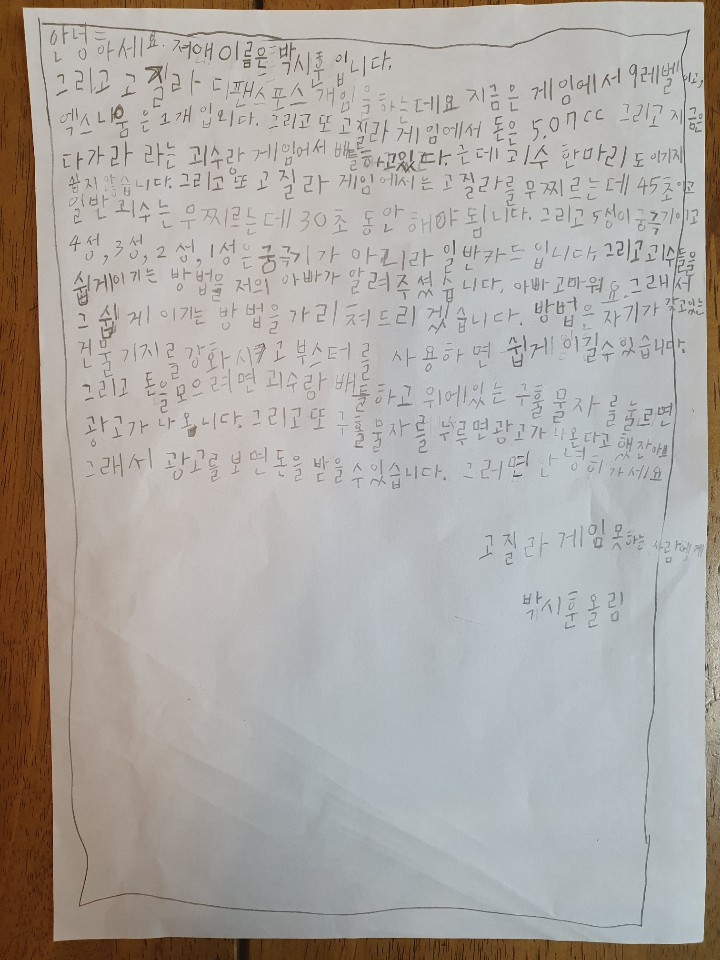 안녕하세요. 저애 이름은 박시훈 입니다.
그리고 고질라 디팬스포스 개임을 하는데요 지금은 게임에서 9레벨이고,
엑스니움은 1개 입니다. 그리고 또 고질라 게임에서 돈은 5,07cc 그리고 지금은
다가라 라는 괴수라 게임에서 배틀하고있다. 근데 괴수 한마리도 이기지
쉽지 않습니다. 그리고 또 고질라 게임에서는 고질라를 무찌르는데 45초이고
일반괴수는 무찌르는데 30초 동안 해야 됩니다. 그리고 5성이 궁극기이고
4성, 3성, 2성, 1성은 궁극기가 아니라 일반카드 입니다. 그리고 괴수들을
쉽게이기는 방법을 저의 아빠가 알려주셨습니다. 아빠고마워요. 그래서
그 쉽게 이기는 방법을 가리쳐드리겠습니다. 방법은 자기가 갖고있는
건물 기지를 강화시키고 부스터를 사용하면 쉽게 이길수있습니다.
그리고 돈을 모으려면 괴수랑 배틀하고 위에있는 구훌물자를 눌르면
광고가 나옵니다. 그리고 또 구훌물자를 누루면 광고가 나온다고 했잔아요
그래서 광고를 보면 돈을 받을 수있습니다. 그러면 안녕히 가세요
고질라 게임 못하는 사람에게
박시훈 올림